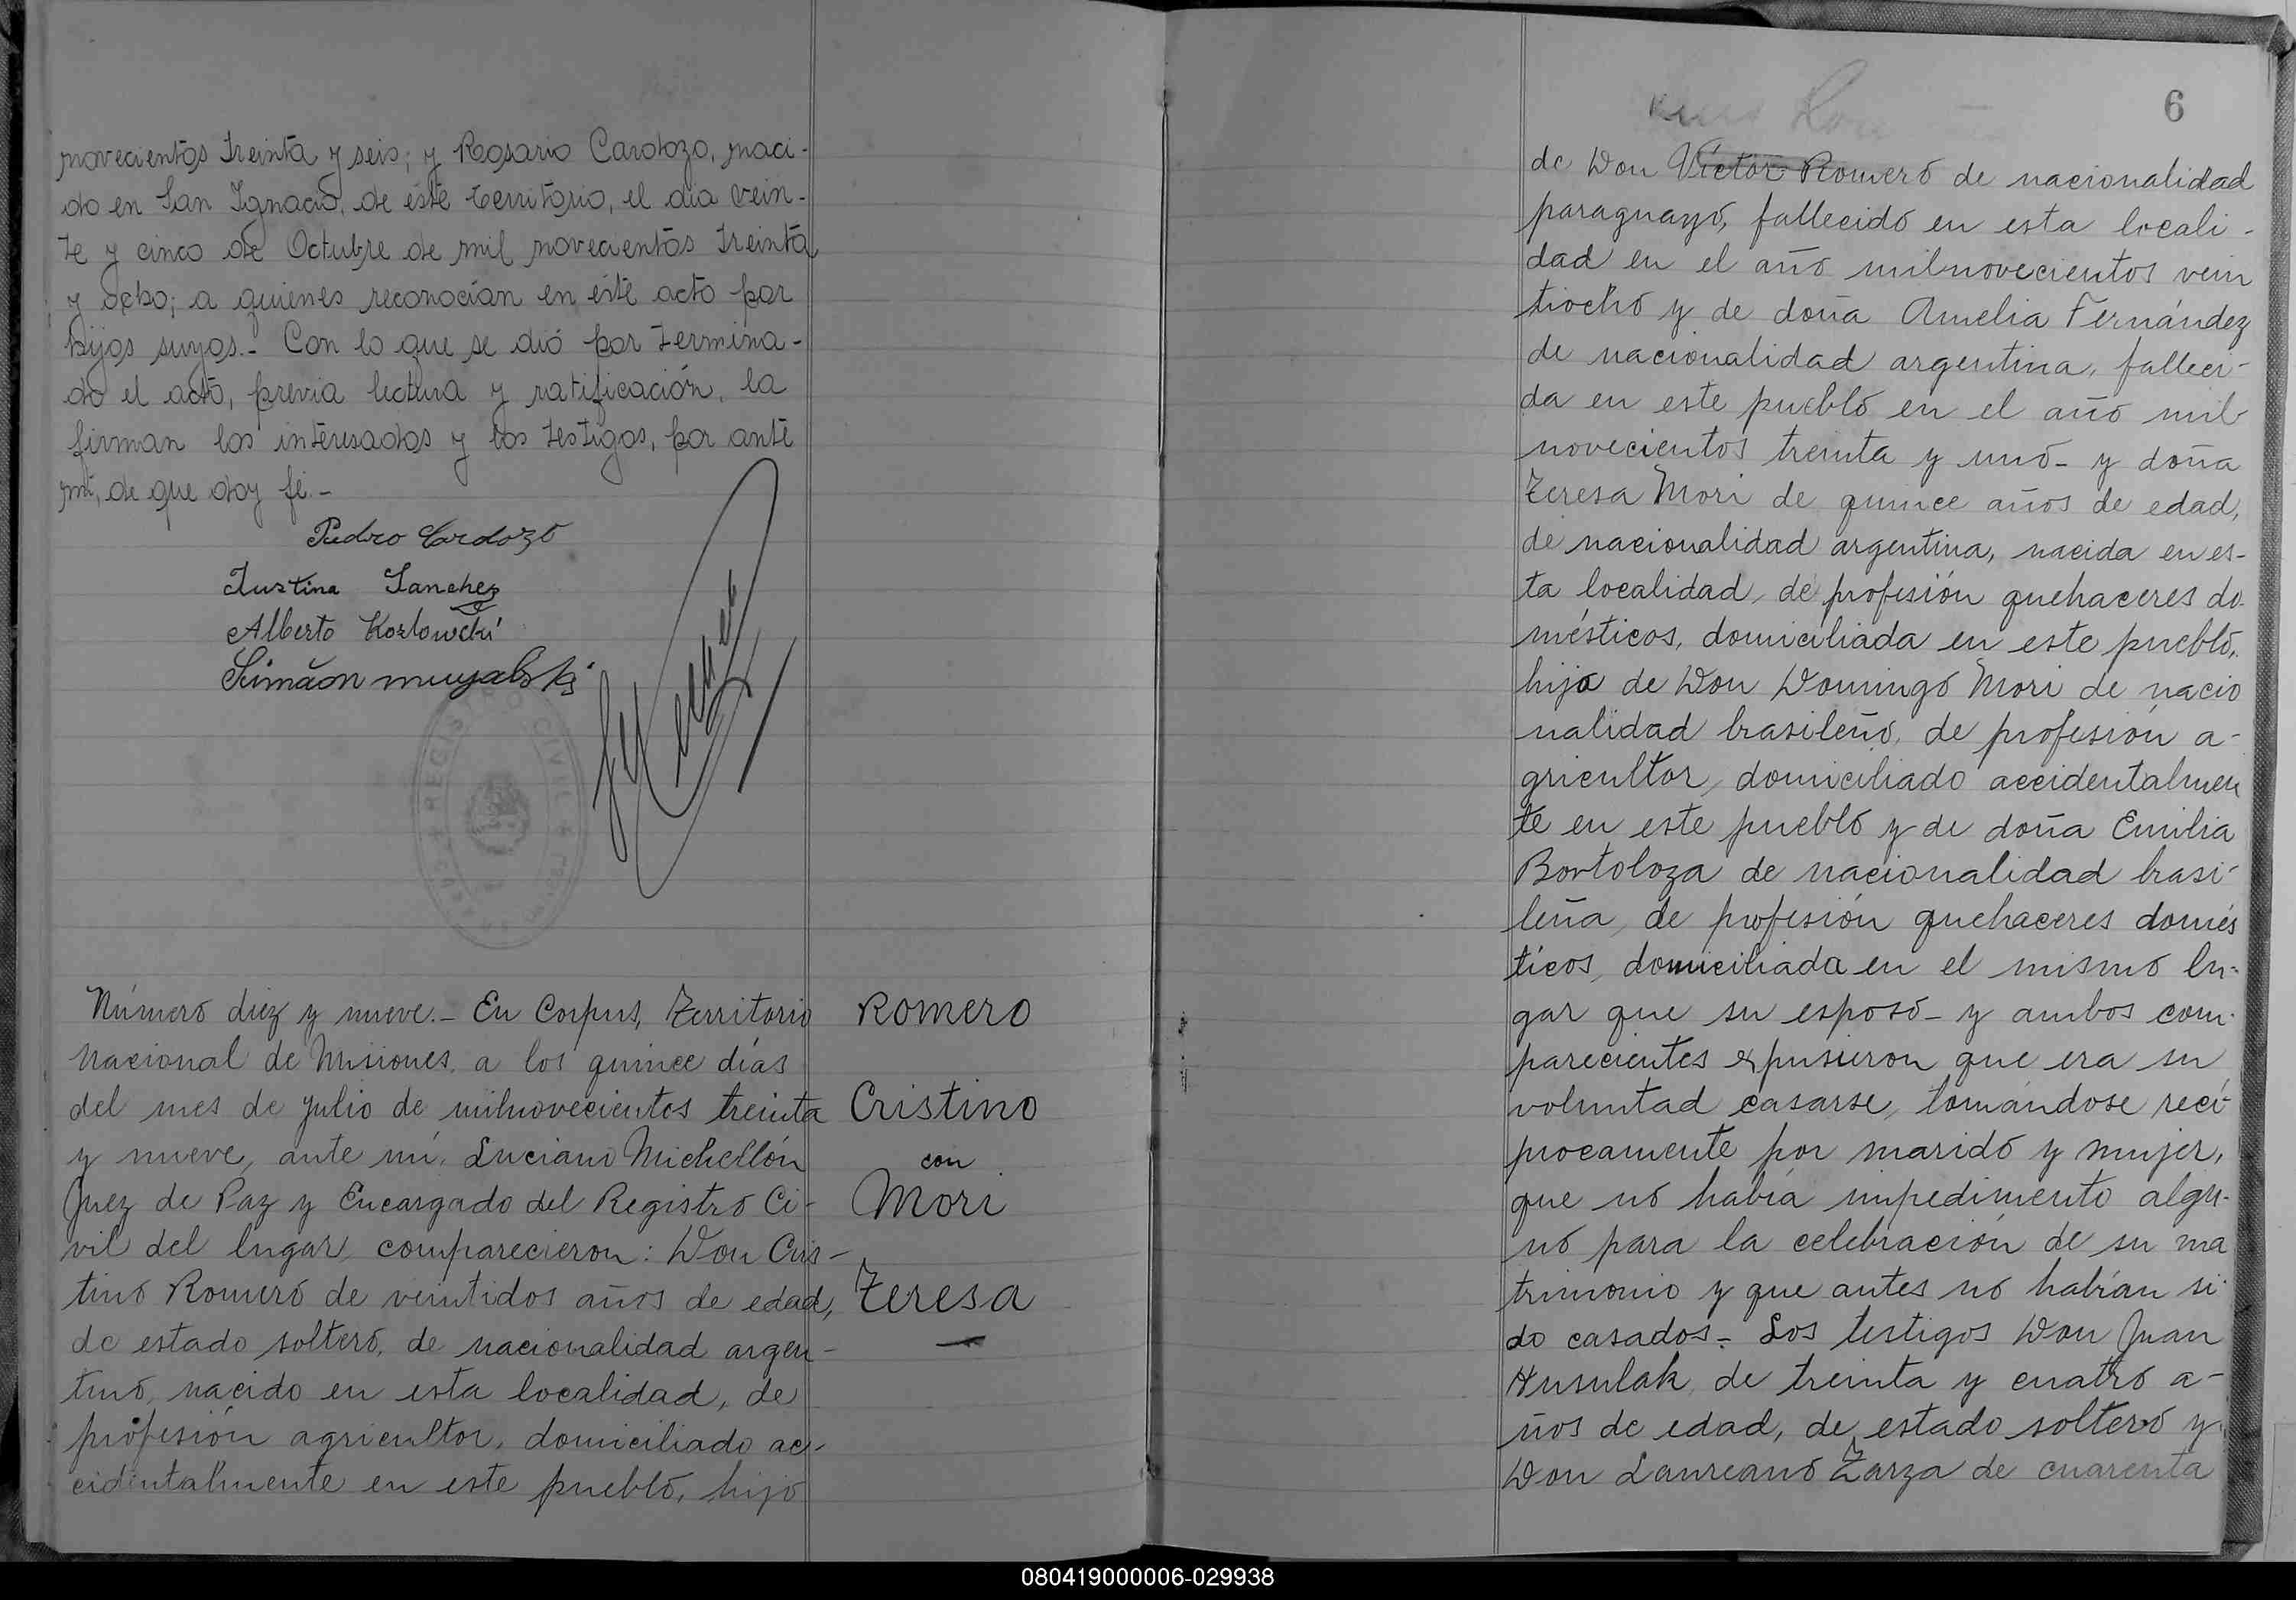 novecientos treinta y seis; y Rosario Cardozo, naci-
do en San Ignacio, de éste territorio, el día vein-
te y cinco de Octubre de mil novecientos treinta
y ocho; a quienes reconocían en éste acto por
hijos suyos.- Con lo que se dió por termina-
do el acto, previa lectura y ratificación, la
firman los interesados y los testigos, por ante
mí, de que doy fé.-
Pedro Cardozo
Justina Sanchez
Alberto Kozlowski
Simäon muyalski
REGISTRO CIVIL
Número diez y nueve.- En Corpus, Territorio
Nacional de Misiones, a los quince días
del mes de julio de milnovecientos treinta
y nueve, ante mí, Luciano Michellón
Juez de Paz y Encargado del Registro Ci-
vil del lugar, comparecieron: Don Cris-
tino Romero de veintidos años de edad,
de estado soltero, de nacionalidad argen-
tino, nacido en esta localidad, de
profesión agricultor, domiciliado ac-
cidentalmente en este pueblo, hijo
Romero
Cristino
con
Mori
Teresa
6
de Don Víctor Romero de nacionalidad
paraguayo, fallecido en esta locali-
dad en el año milnovecientos vein
tiocho y de doña Amelia Fernández
de nacionalidad argentina, falleci-
da en este pueblo en el año mil
novecientos treinta y uno- y doña
Teresa Mori de quince años de edad,
de nacionalidad argentina, nacida en es-
ta localidad, de profesión quehaceres do-
mésticos, domiciliada en este pueblo,
hija de Don Domingo Mori de nacio
nalidad brasileño, de profesión a-
gricultor, domiciliado accidentalmen
te en este pueblo y de doña Emilia
Bortoloza de nacionalidad brasi-
leña, de profesión quehaceres domés
ticos, domiciliada en el mismo lu-
gar que su esposo- y ambos com-
parecientes expusieron que era su
voluntad casarse, tomándose recí-
procamente por marido y mujer,
que no había impedimento algu-
no para la celebración de su ma
trimonio y que antes no habían si-
do casados.- Los testigos Don Juan
Husulak, de treinta y cuatro a-
ños de edad, de estado soltero y
Don Laureano Zarza de cuarenta
080419000006-029938